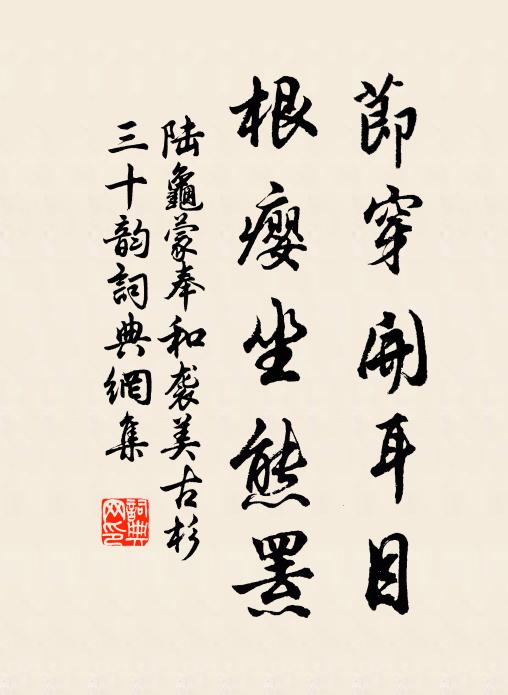 節穿開耳目
根癭坐熊羆
陆龜蒙奉和袭美古杉
三十韵詞典網集
詞典网印